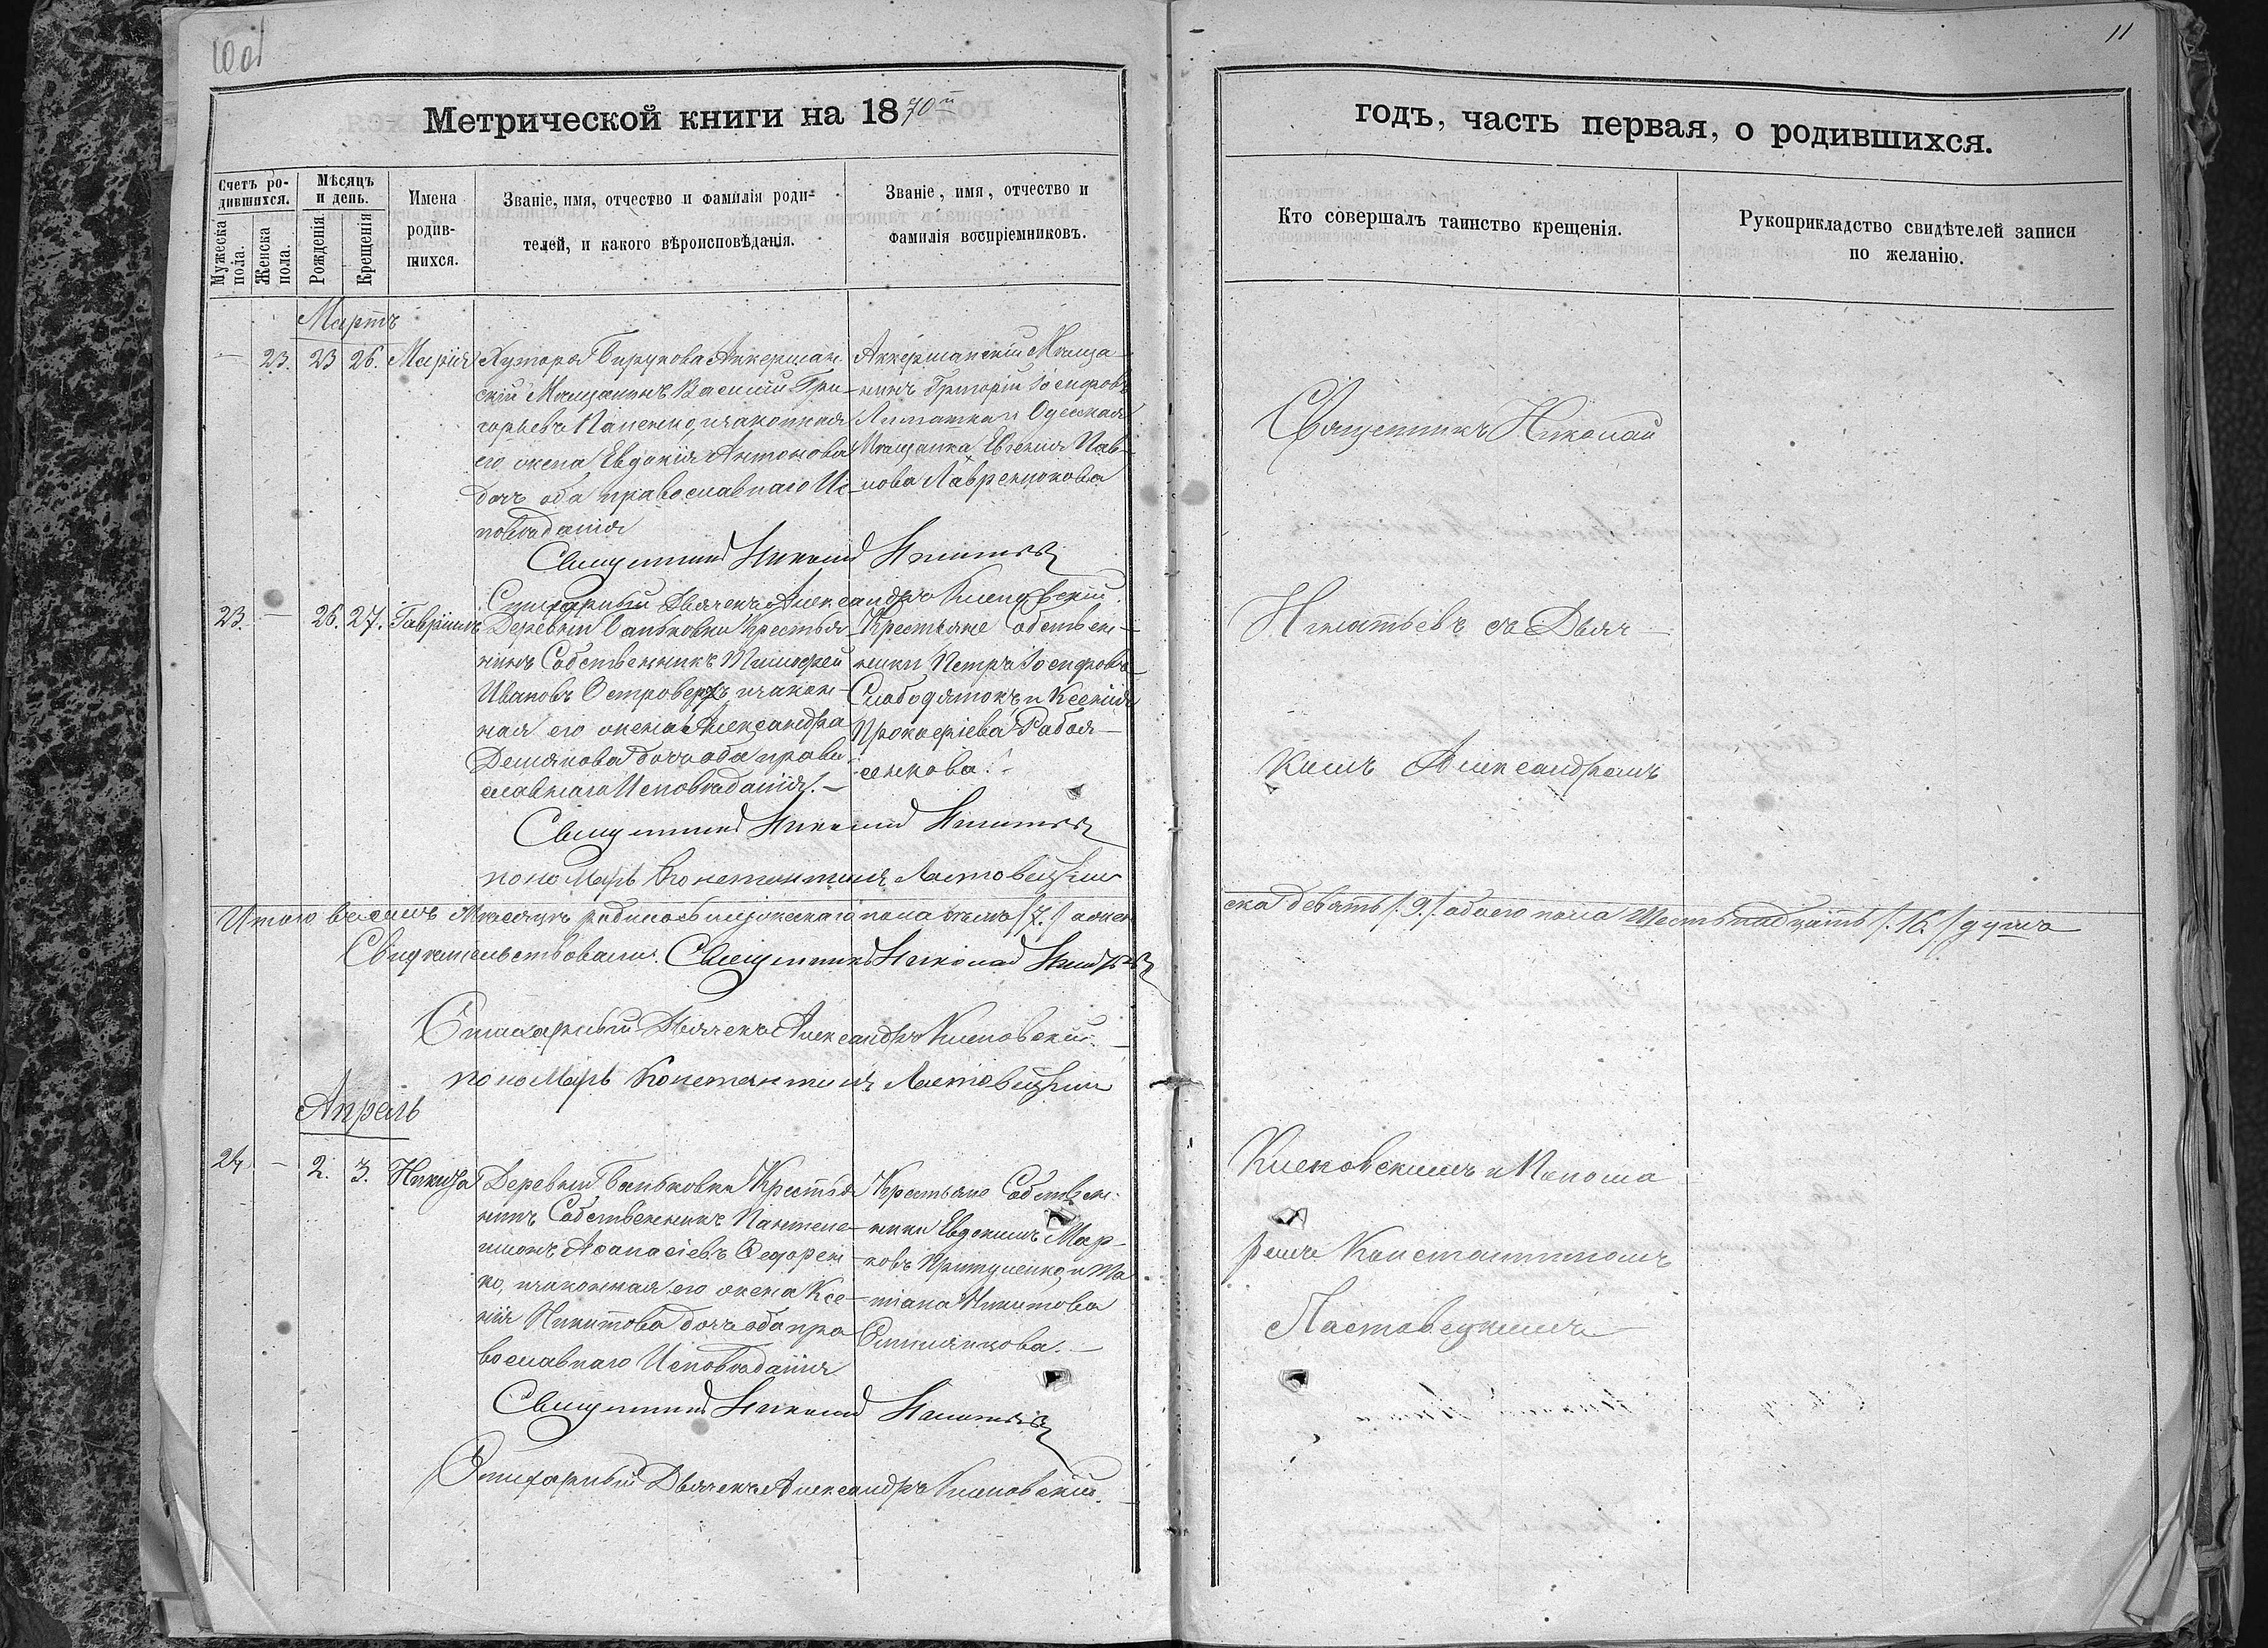 11
Метрической книги на 1870й
годъ, часть первая, о родившихся.
Счетъ ро-
дившихся.
Мужеска пола.
Женска пола.
Мѣсяцъ
и день.
Рожденія
Крещенія
Имена
родив-
шихся.
Званіе, имя, отчество и фамилія роди-
телей, и какого вѣроисповѣданія.
Званіе, имя, отчество и
фамилія воспріемниковъ.
Кто совершалъ таинство крещенія.
Рукоприкладство свидѣтелей записи
по желанію.
Мартъ
— 23. 23 26. Марія
Хутора Бирукова Аккерман
скій Мѣщанинъ Василій Гри-
горьевъ Папенко, и законная
его жена Евдокія Антонова
дочь оба православнаго Ис-
повѣданія
Аккерманскій Мѣща-
нинъ Григорій Іосифовъ
и Одесская
Мѣщанка Евгенія Пав-
лова Лавренюкова
Священникъ Николай Игнатьевъ
Дьячекъ Александръ Кисловскій.
23. — 26. 27. Гавріилъ
Деревни Ваньковки Крестья
нинъ Собственникъ Тимофей
Ивановъ Островерхъ и закон-
ная его жена Александра
Демянова дочь оба право-
славнаго Исповѣданія. —
Крестьяне Собствен-
ники Петръ Іосифовъ
Слободянюкъ и Ксенія
Прокофіева Рабоя-
сенкова. —
Священникъ Николай Игнатьевъ
пономарь Константинъ Ластовецкій
Итого въ семъ Мѣсяцѣ родилось мужескаго пола семь /.7./ а жен
ска девять /.9./. обоего пола Шестьнадцать /.16./ душъ
Свидѣтельствовали: Священникъ Николай Игнатьевъ
Дьячекъ Александръ Кисловскій. —
пономарь Константинъ Ластовецкій
Апрель
24. — 2. 3. Никита
Деревни Ваньковки Крестья
нинъ Собственникъ Пантеле-
имонъ Аѳанасіевъ Ѳедорен
ко, и законная его жена Ксе-
нія Никитова дочь оба пра
вославнаго Исповѣданія
Крестьяне Собствен-
ники Евдокимъ Мар-
ковъ Притуленко, и Та
тіана Никитова
Священникъ Николай Игнатьевъ
Дьячекъ Александръ Кисловскій.
Священникъ Николай
Игнатьевъ съ Дьяч —
комъ Александромъ
Кисловскимъ и Понома
ремъ Константиномъ
Ластовецкимъ